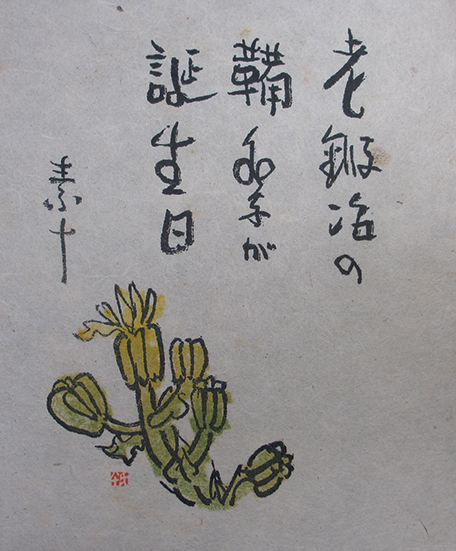 老鍛冶の
鞴祭が
誕生日
素十